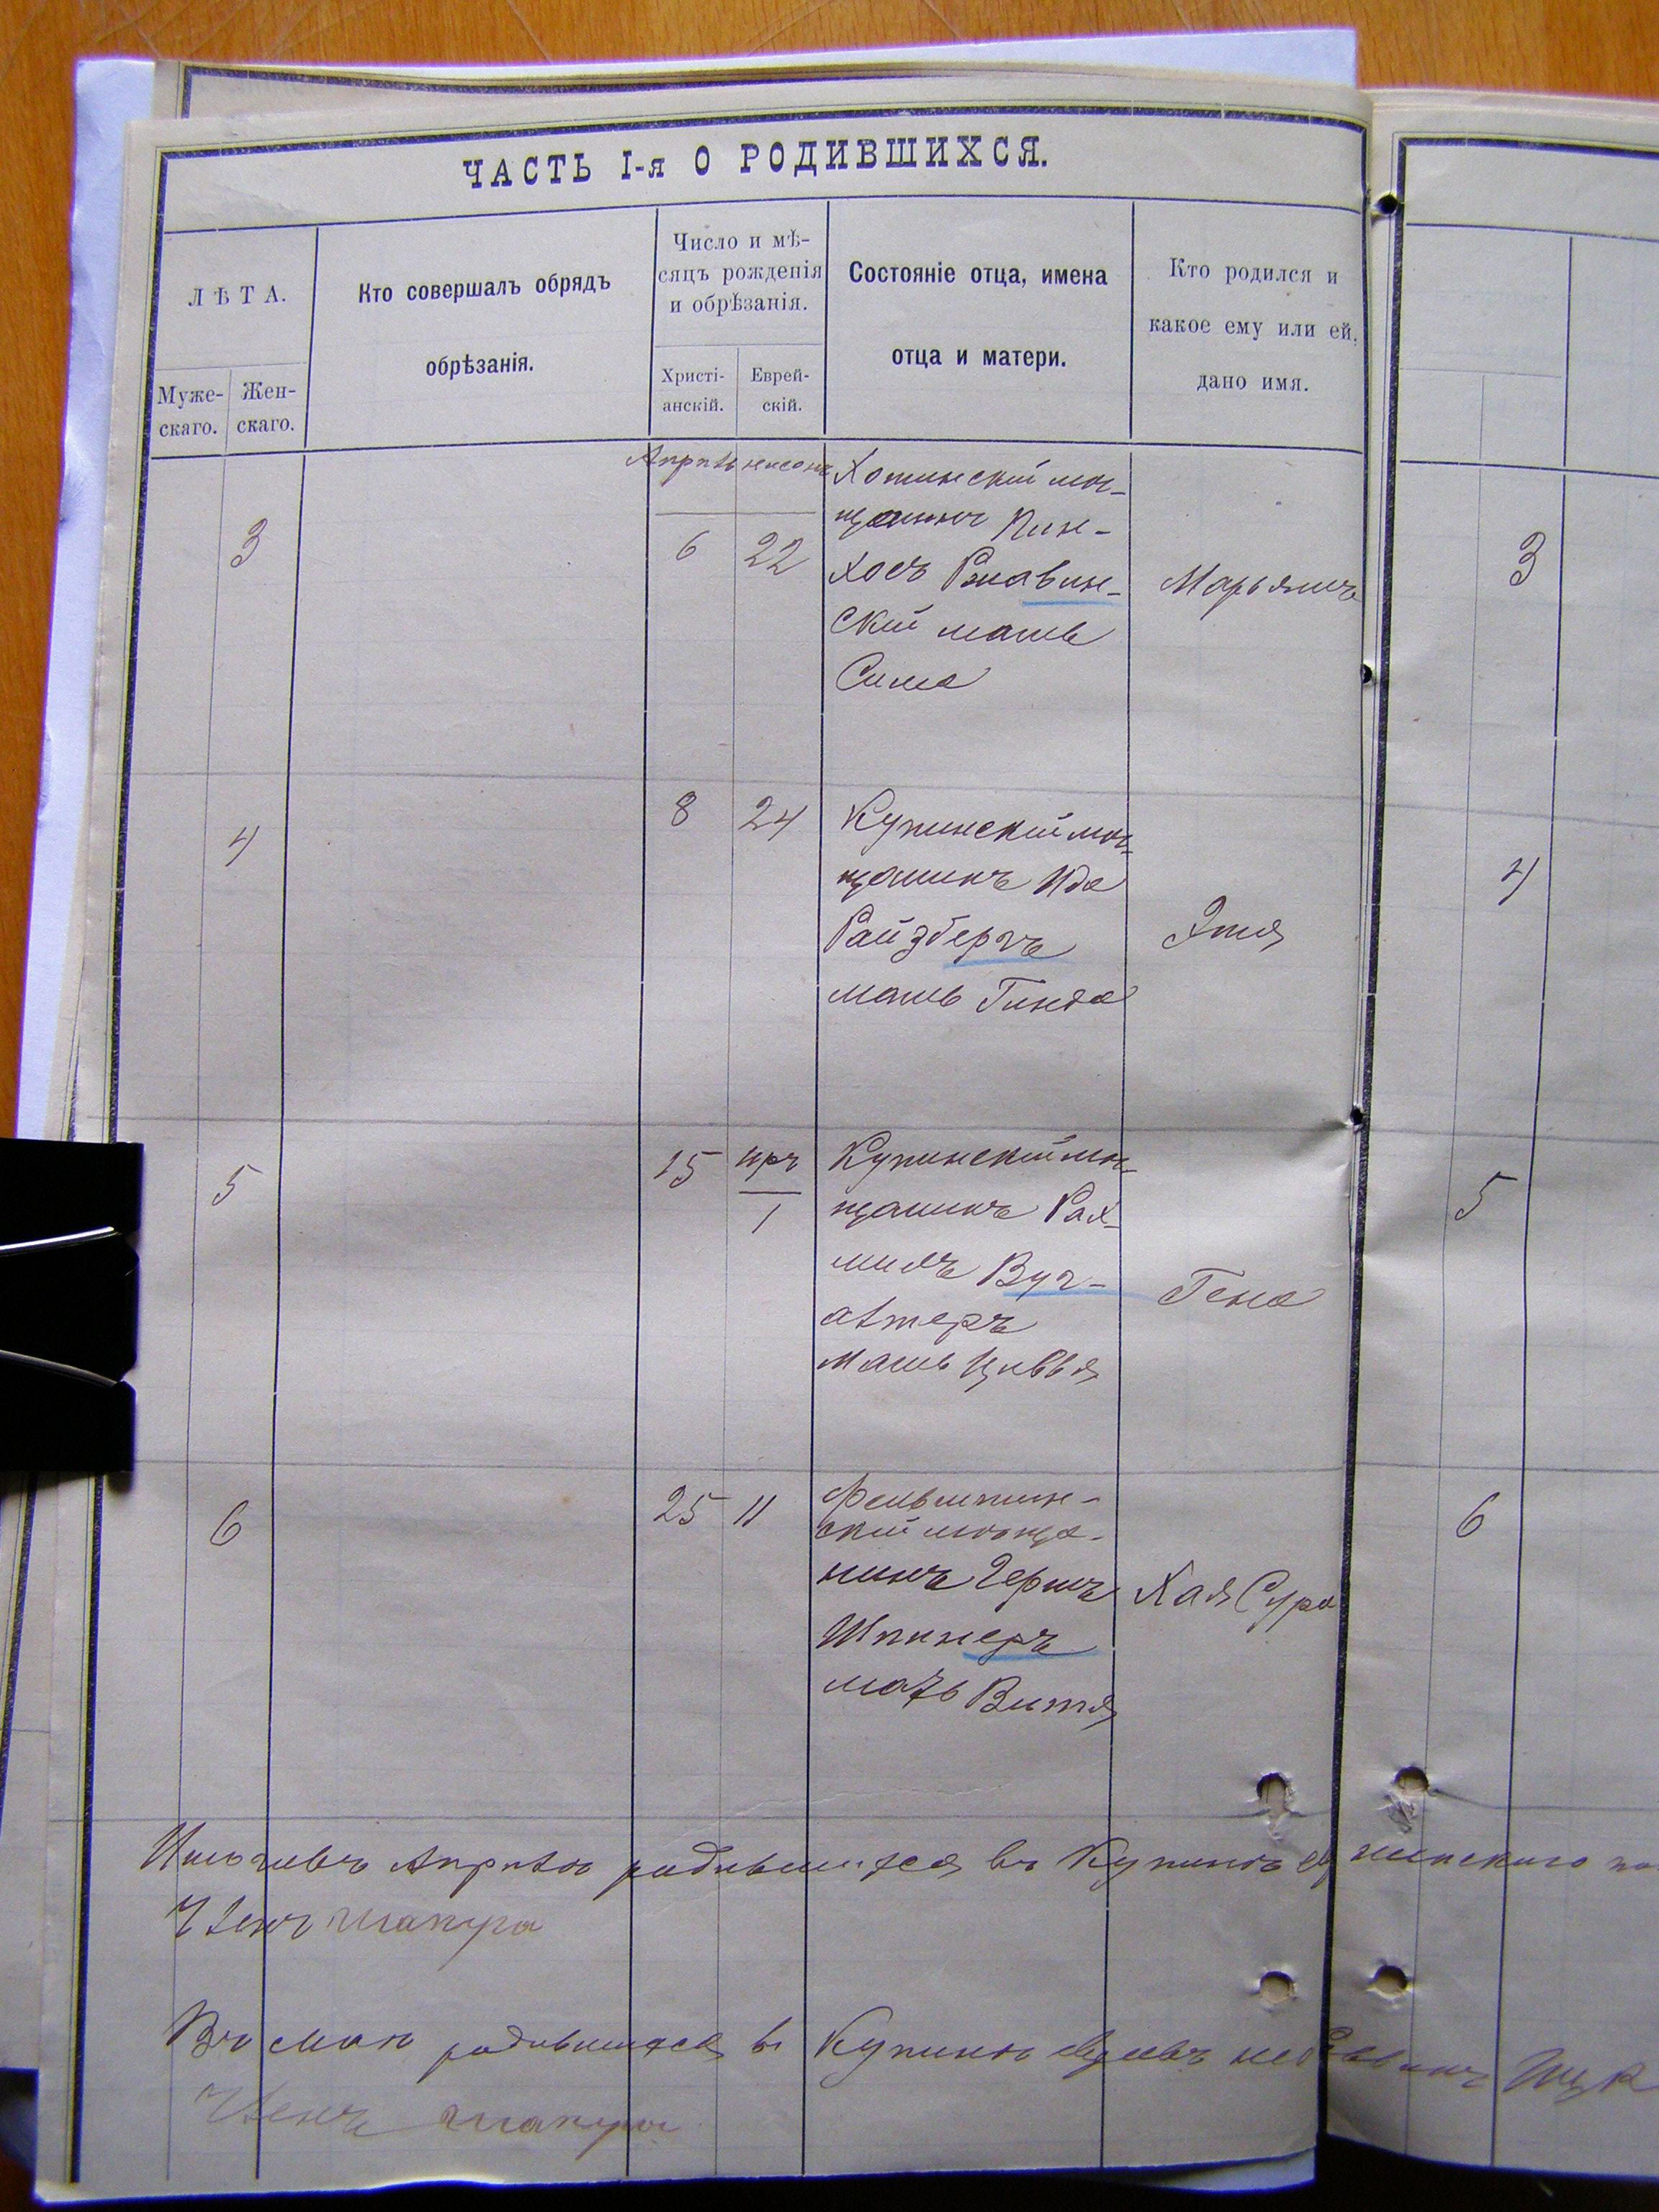 ЧАСТЬ I-я О РОДИВШИХСЯ.
ЛѢТА.
Муже-
скаго.
Жен-
скаго.
Кто совершалъ обрядъ
обрѣзанія.
Число и мѣ-
сяцъ рожденія
и обрѣзанія.
Христі-
анскій.
Еврей-
скій.
Состояніе отца, имена
отца и матери.
Кто родился и
какое ему или ей,
дано имя.
Апрѣль нисонъ
3
6
22
Хотинскій мѣ-
щанинъ Пин-
хосъ Ржавин-
скій мать
Сима
Марьямъ
3
4
8
24
Купинскій мѣ-
щанинъ Ида
Райзбергъ
мать Гинда
Этя
4
5
15
иръ
1
Купинскій мѣ-
щанинъ Рах-
милъ Вуг-
альтеръ
мать Цивья
Гена
5
6
25
11
Фельштин-
скій мѣща-
нинъ Гершъ
Шпинеръ
мать Витя
Хая Сура
6
Апрѣлѣ родившихся въ Купинѣ
Членъ Шапира
Въ маѣ родившихся въ Купинѣ
Членъ Шапира